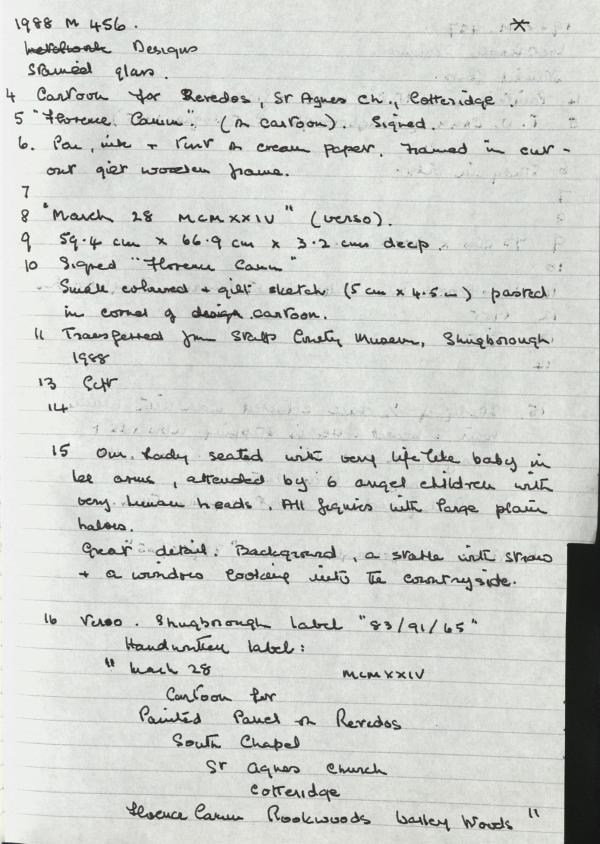 1988 M 456. *
Designs
Stained glass.
4 Cartoon for Reredos, St Agnes Ch., Cotteridge.
5 "Florence Camm". (on cartoon). Signed.
6. Pen, ink + tint on cream paper. Framed in cut-
out gilt wooden frame.
7
8 "March 28 MCMXXIV" (verso).
9 59.4 cm x 66.9 cm x 3.2 cms deep.
10 Signed "Florence Camm"
Small coloured + gilt sketch (5 cm x 4.5 cm) pasted
in corner of design cartoon.
11 Transferred from Staffs County Museum, Shugborough
1988
13
14
15 Our Lady seated with very lifelike baby in
her arms, attended by 6 angel children with
very human heads. All figures with large plain
haloes.
Great detail. Background, a stable with straw
+ a window looking into the countryside.
16 Verso. Shugborough label "83/91/65"
Handwritten label:
"March 28 MCMXXIV
Cartoon for
Painted Panel on Reredos
South Chapel
St Agnes Church
Cotteridge
Florence Camm Rookwoods Warley Woods"